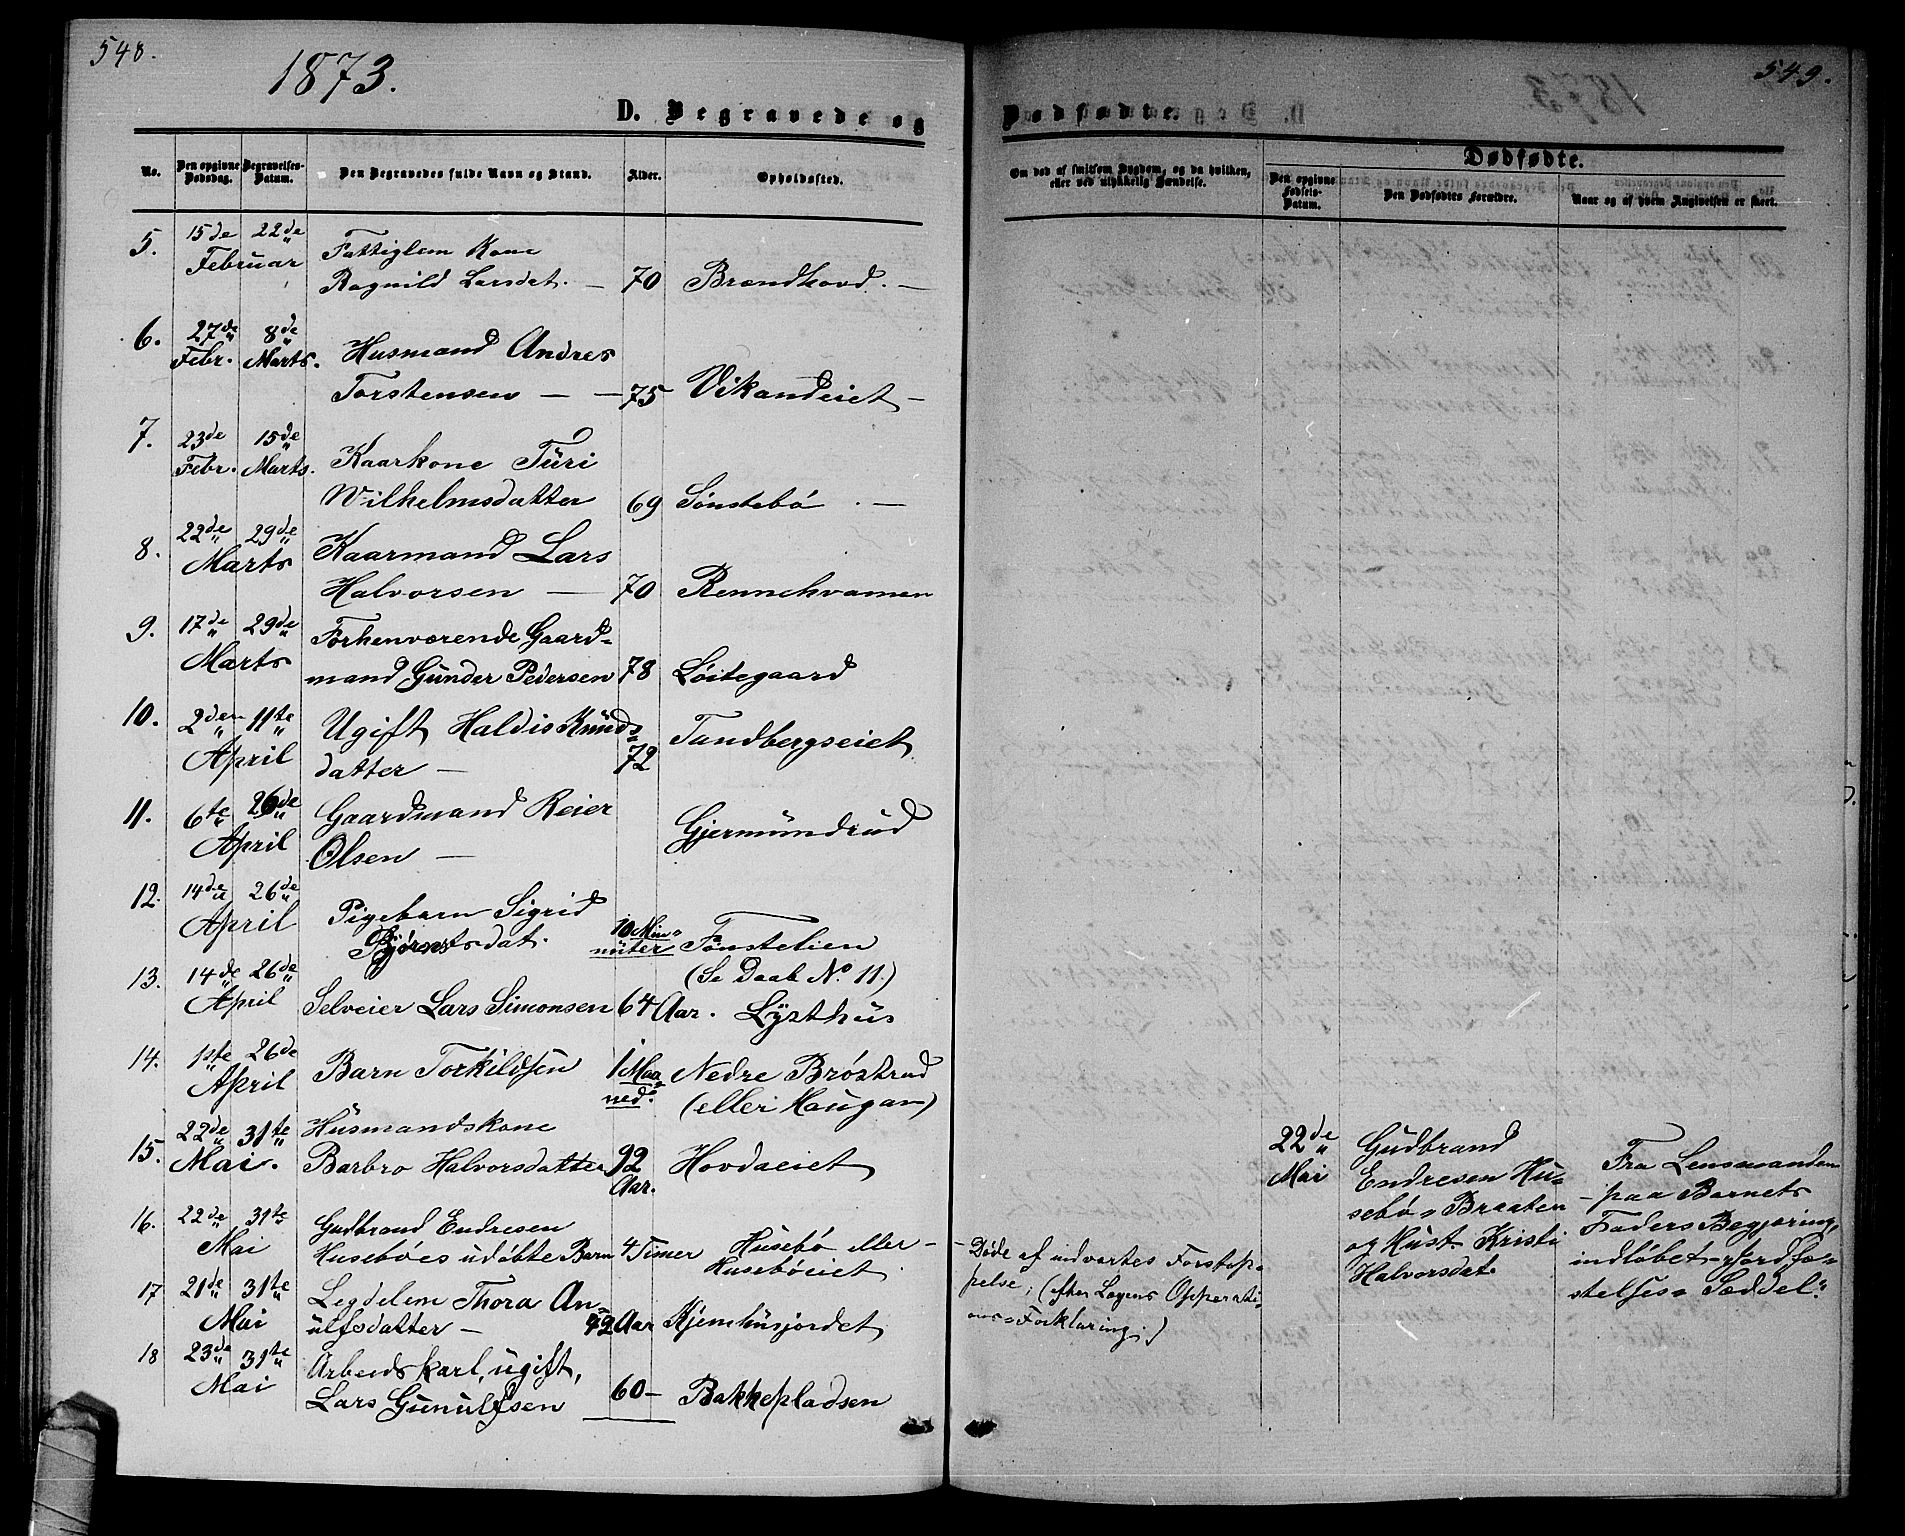 548.
1873.
D. Begravede og
No.
Den opgivne Dødsdag.
Begravelses-Datum.
Den Begravedes fulde Navn og Stand.
Alder.
Opholdssted.
5. 15de 22de Fattiglem Kone
Februar Ragnild Larsdat. — 70 Brændhovd. —
6. 27de 8de Husmand Andres
Febr. Marts. Torstensen — — 75 Vikandeiet —
7. 23de 15de Kaarkone Turi
Febr. Marts. Wilhelmsdatter 69 Sønstebø. —
8. 22de 29de Kaarmand Lars
Marts Halvorsen — 70 Rennehvamen
9. 17de 29de Forhenværende Gaard-
Marts mand Gunder Pedersen 78 Løitegaard
10. 2den 11te Ugift Haldis Knuds- Tandbergseiet
April datter — 72
11. 6te 26de Gaardmand Reier Gjermundrud
April Olsen —
12. 14de 26de Pigebarn Sigrid 10 Mi-
April Bjørnsdat. nuter Tønstelien
(Se Daab No. 11.)
13. 14de 26de
April Selveier Lars Simonsen 64 Aar. Lysthus
14. 1ste 26de Barn Torkildsen 1 Maa- Nedre Brøstrud
April ned. (eller Haugan)
15. 22de 31te Husmandskone
Mai. Barbro Halvorsdatter 92 Aar. Hovdaeiet
16. 22de 31te Gudbrand Endresen
Mai Husebøes udøbte Barn 4 Timer Husebø eller —
Husebøeiet.
17 21de 31te Legdelem Thora An-
Mai ulfsdatter — 92 Aar Kjemhusjordet
18 23de 31te Arbeidskarl, ugift,
Mai Lars Gunulfsen 60 — Bakkepladsen
549.
Dødfødte.
Om død af smitsom Sygdom, og da hvilken,
eller ved ulykkelig Hændelse.
Dødfødte.
Den opgivne Fødsels-Datum.
Den Dødfødtes Forældre.
Naar og af hvem Angivelsen er skeet.
22de Gudbrand
Mai Endresen Hu-
sebø-Braaten
og Hust. Kristi
Halvorsdat.
Fra Lensmanden
— paa Barnets
Faders Begjæring,
indløbet Jordfæ-
stelses-Seddel.
— Døde af indvortes Forstop-
pelse; (efter Lægens Opperati-
ons-Forklaring.)